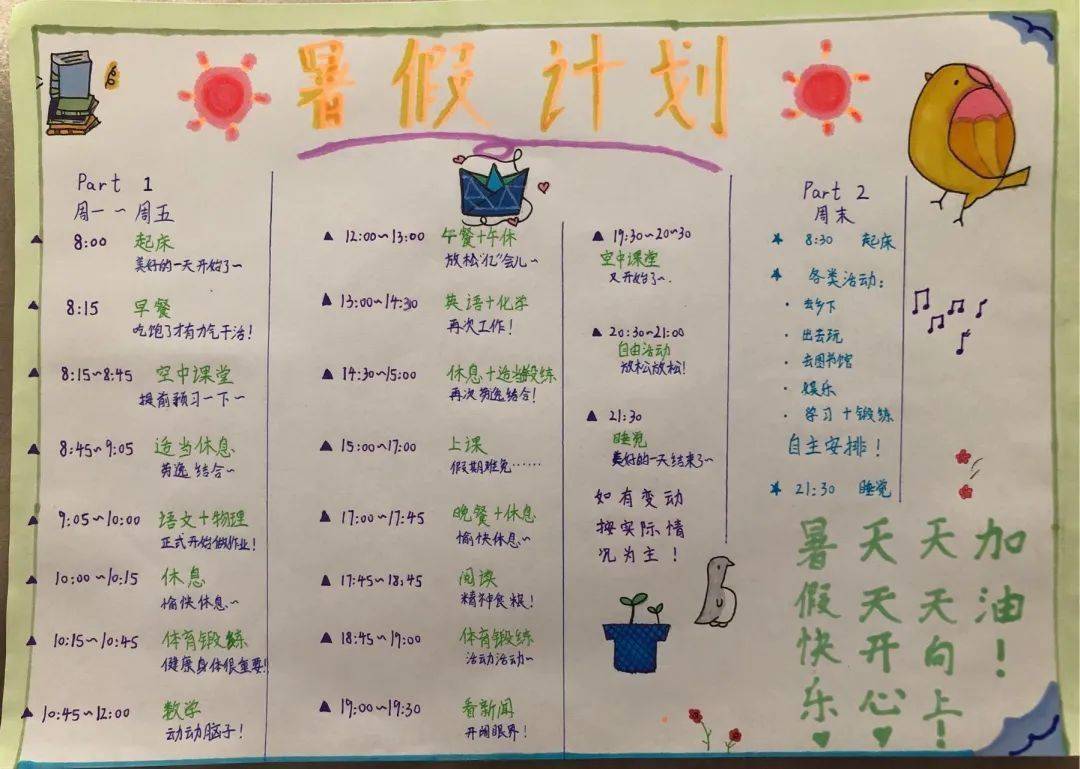 暑假计划
Part 1
周一~周五
8:00 起床
美好的一天开始了~
8:15 早餐
吃饱了才有力气干活!
8:15~8:45 空中课堂
提前预习一下~
8:45~9:05 适当休息
劳逸结合~
9:05~10:00 语文+物理
正式开始做作业!
10:00~10:15 休息
愉快休息~
10:15~10:45 体育锻炼
健康身体很重要!
10:45~12:00 数学
动动脑子!
12:00~13:00 午餐+午休
放松“亿”会儿~
13:00~14:30 英语+化学
再次工作!
14:30~15:00 休息+适当锻练
再次劳逸结合!
15:00~17:00 上课
假期难免……
17:00~17:45 晚餐+休息
愉快休息~
17:45~18:45 阅读
精神食粮!
18:45~19:00 体育锻练
活动活动~
19:00~19:30 看新闻
开阔眼界!
19:30~20~30
空中课堂
又开始了~
20:30~21:00
自由活动
放松放松!
21:30
睡觉
美好的一天结束了~
如有变动
按实际情
况为主!
Part 2
周末
8:30 起床
各类活动:
·去乡下
·出去玩
·去图书馆
·娱乐
·学习+锻练
自主安排!
21:30 睡觉
暑假快乐
天天开心
天天向上!
加油!